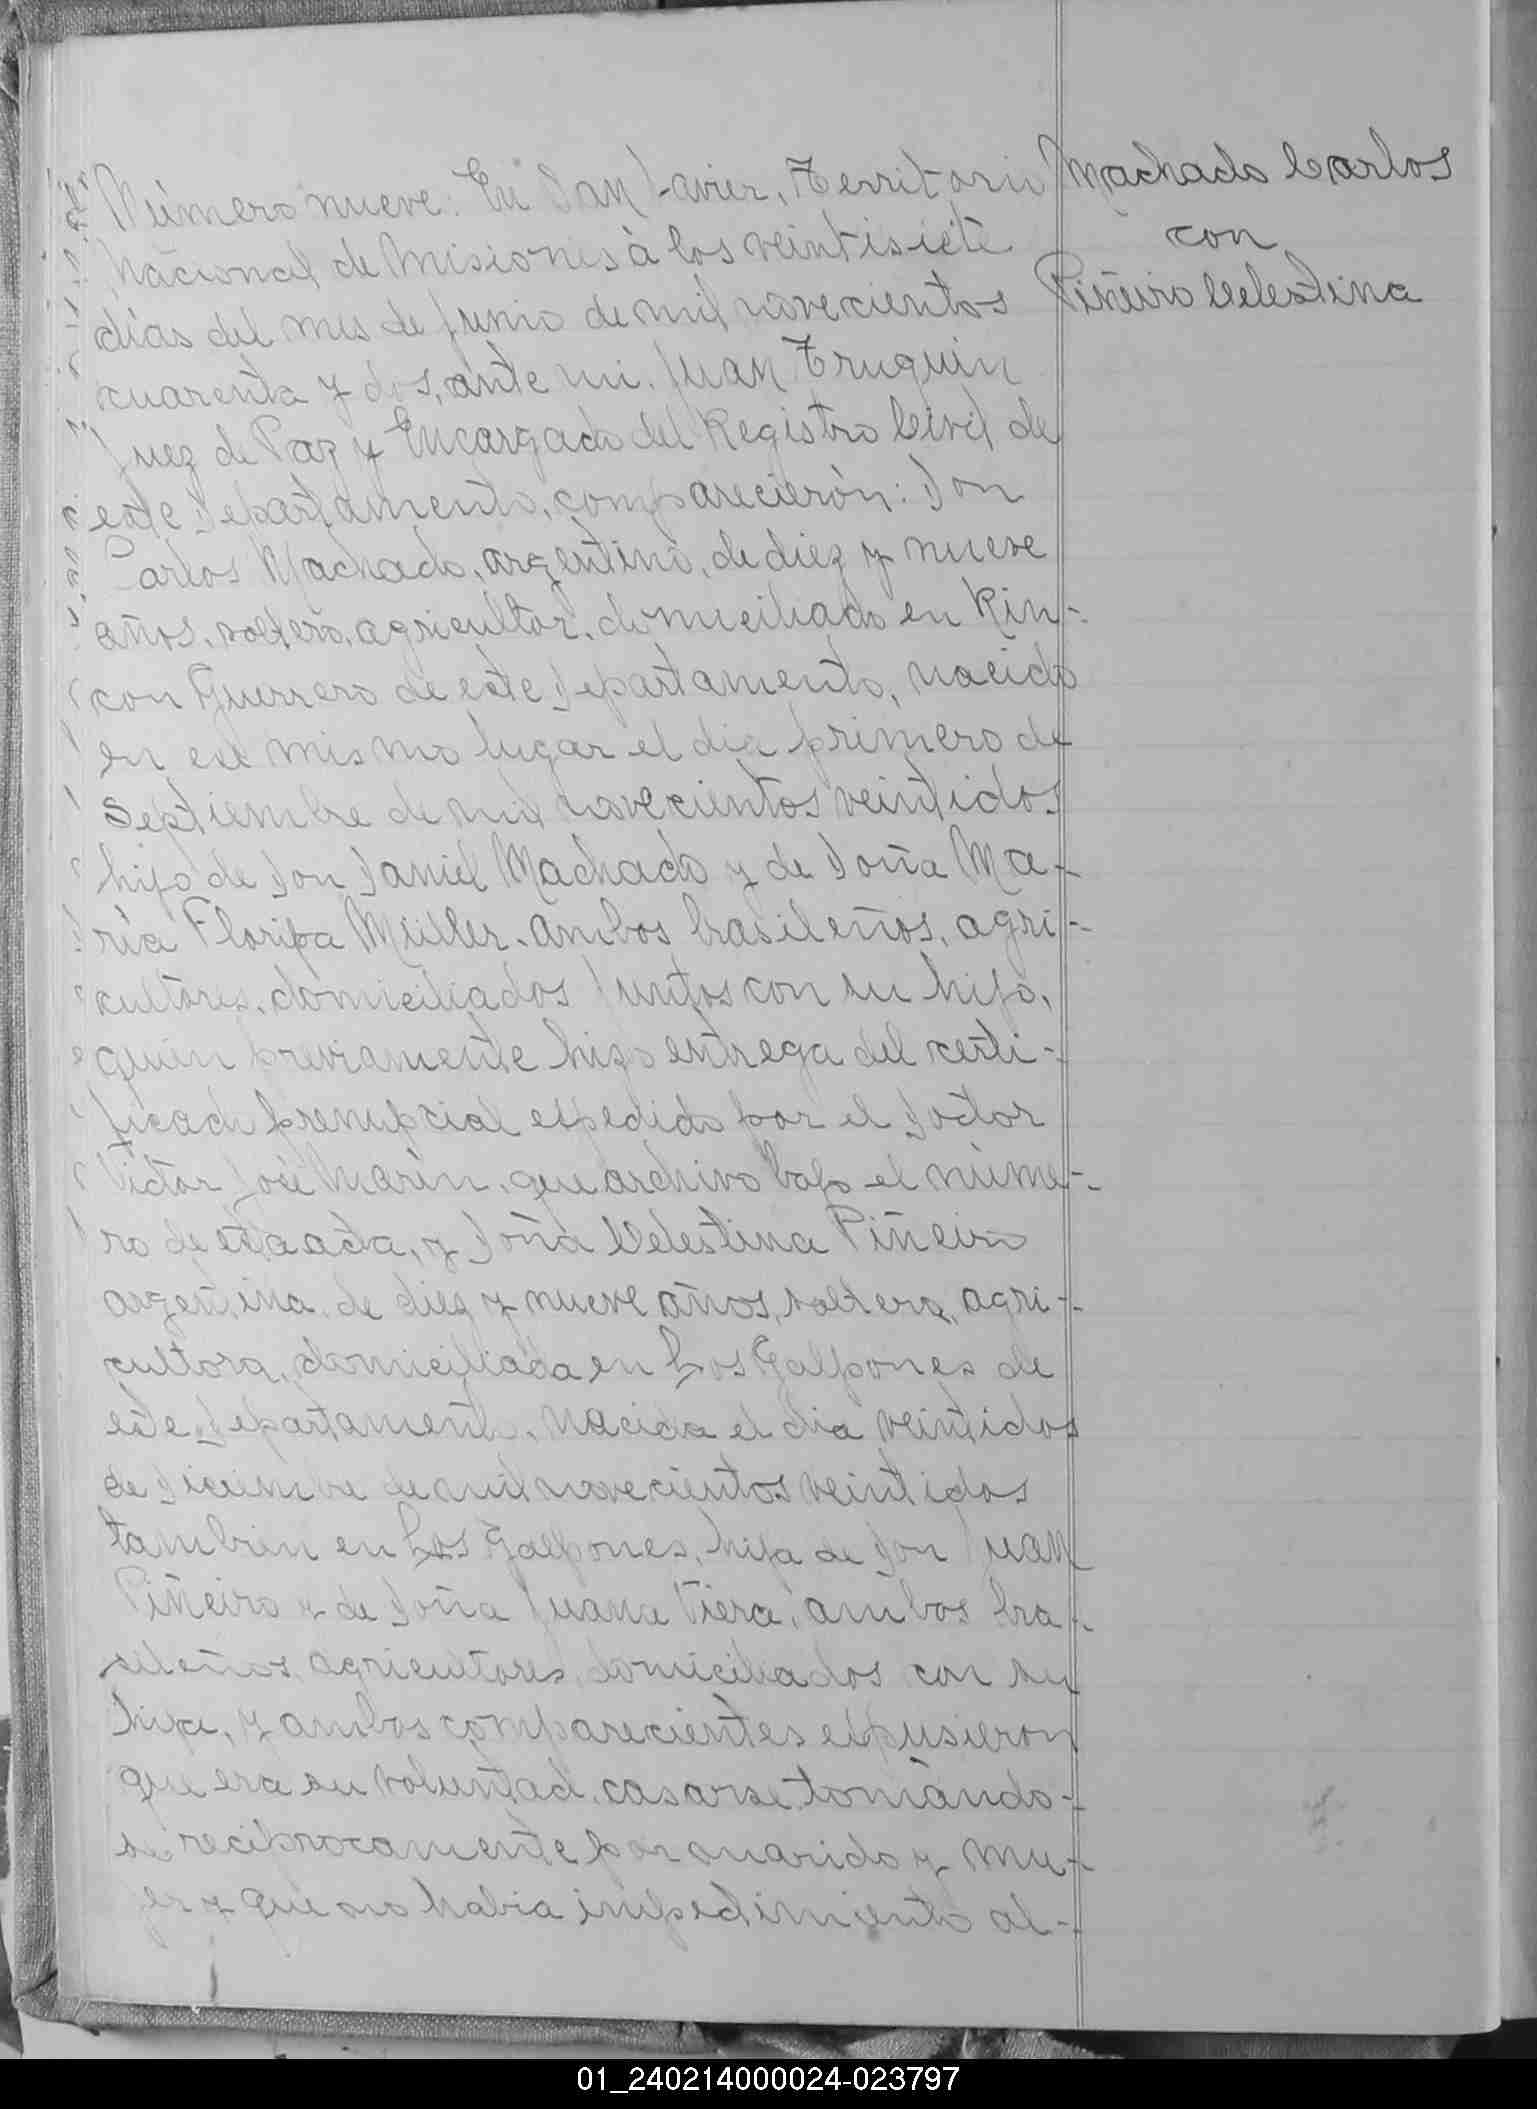 Machado Carlos
con
Piñeiro Celestina
Número nueve: En San Javier, Territorio
Nacional de Misiones à los veintisiete
días del mes de Junio de mil novecientos
cuarenta y dos, ante mi. Juan Truquin
Juez de Paz y Encargado del Registro Civil de
este Departamento, comparecieròn: Don
Carlos Machado, argentino, de diez y nueve
años, soltero, agricultor, domiciliado en Rin-
con Guerrero de este Departamento, nacido
en ese mismo lugar el dia primero de
Septiembre de mil novecientos veintidos
hijo de Don Daniel Machado y de Doña Ma-
ría Floripa Müller. ambos brasileños, agri-
cultores, domiciliados Juntos con su hijo,
quien previamente hizo entrega del certi-
ficado prenupcial espedido por el Doctor
Victor José Marin, que archivo bajo el núme-
ro de esta acta, y Doña Celestina Piñeiro
argentina, de diez y nueve años, soltera, agri-
cultora, domiciliada en Los Galpones de
este Departamento, nacida el dia veintidos
de Diciembre de mil novecientos veintidos
tambien en Los Galpones, hija de Don Juan
Piñeiro y de Doña Juana Viera, ambos bra-
sileños, agricultores, domiciliados con su
hija, y ambos comparecientes espusieron
que era su voluntad casarse tomàndo-
se reciprocamente por marido y mu-
jer y que no habia impedimiento al-
01_240214000024-023797